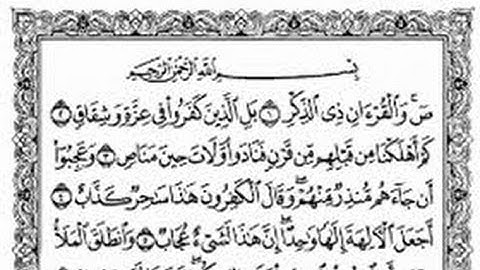 بِسْمِ اللَّهِ الرَّحْمَٰنِ الرَّحِيمِ
صٓ ۚ وَالْقُرْءَانِ ذِى الذِّكْرِ ١ بَلِ الَّذِينَ كَفَرُوا۟ فِى عِزَّةٍ وَشِقَاقٍ ٢
كَمْ أَهْلَكْنَا مِن قَبْلِهِم مِّن قَرْنٍ فَنَادَوا۟ وَّلَاتَ حِينَ مَنَاصٍ ٣ وَعَجِبُوٓا۟
أَن جَآءَهُم مُّنذِرٌ مِّنْهُمْ ۖ وَقَالَ الْكَٰفِرُونَ هَٰذَا سَٰحِرٌ كَذَّابٌ ٤
أَجَعَلَ الْءَالِهَةَ إِلَٰهًا وَٰحِدًا ۖ إِنَّ هَٰذَا لَشَىْءٌ عُجَابٌ ٥ وَانطَلَقَ الْمَلَأُ